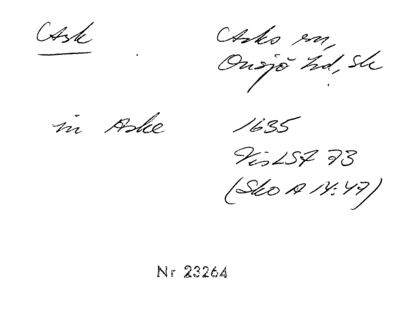 Ask Asks sn,
Onsjö hd, Sk
in Aske 1635
VisLSA 73
(Sko A 14:47)
Nr 23264